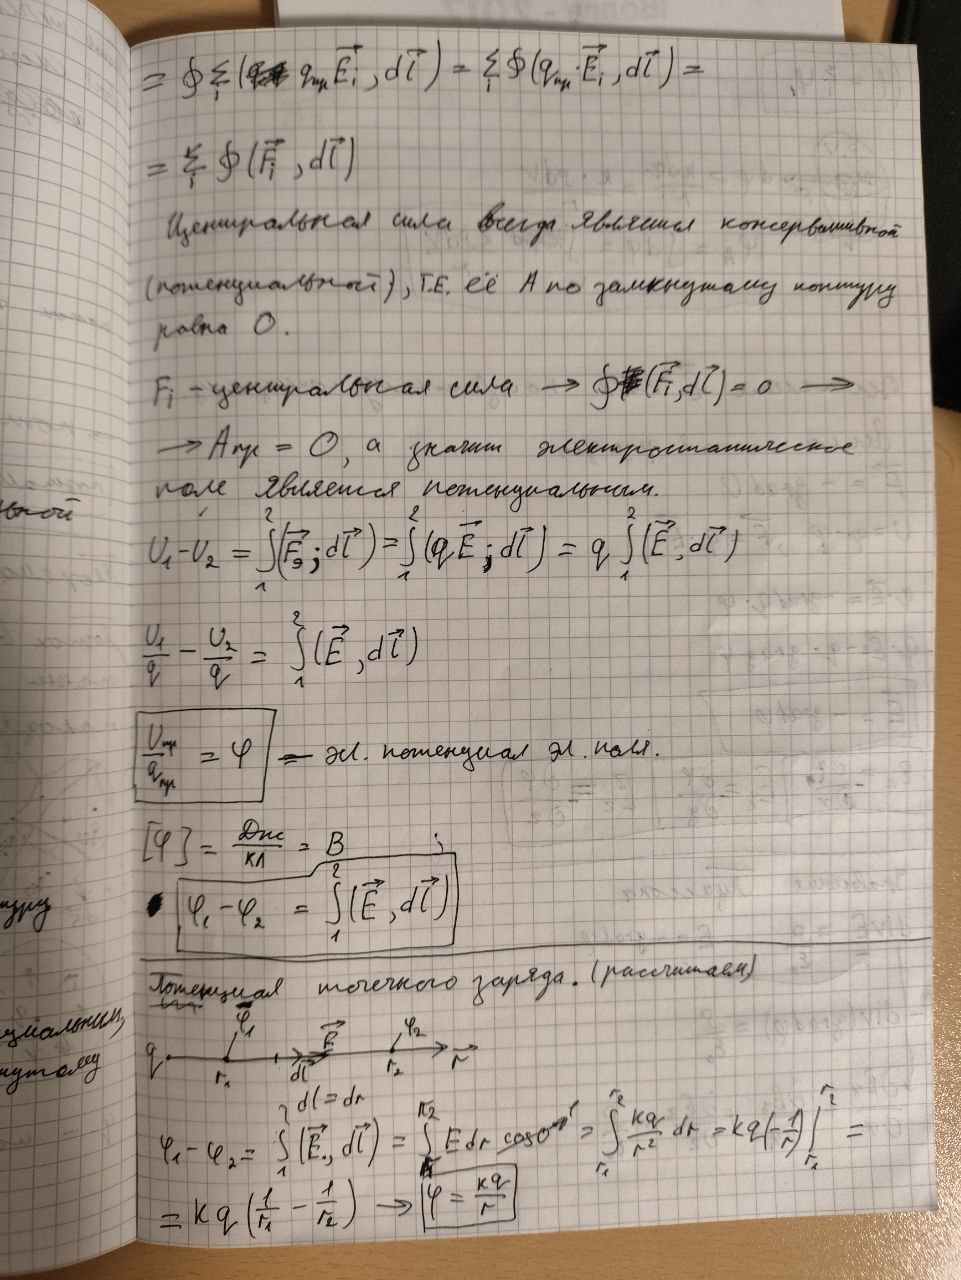 = ∮ Σ_i (q_пр E⃗_i, dl⃗) = Σ_i ∮ (q_пр · E⃗_i, dl⃗) =
= Σ_i ∮ (F⃗_i, dl⃗)
Центральная сила всегда является консервативной
(потенциальной), т.е. её A по замкнутому контуру
равна 0.
F_i - центральная сила → ∮ (F⃗_i, dl⃗) = 0 →
→ A_пр = 0, а значит электростатическое
поле является потенциальным.
U_1 - U_2 = ∫_1^2 (F⃗_э; dl⃗) = ∫_1^2 (qE⃗; dl⃗) = q ∫_1^2 (E⃗, dl⃗)
U_1/q - U_2/q = ∫_1^2 (E⃗, dl⃗)
U_пр/q_пр = φ — эл. потенциал эл. поля.
[φ] = Дж/Кл = В ;
φ_1 - φ_2 = ∫_1^2 (E⃗, dl⃗)
Потенциал точечного заряда. (рассчитаем)
φ_1 E⃗ φ_2
q r_1 dl⃗ r_2 r⃗
dl = dr
φ_1 - φ_2 = ∫_1^2 (E⃗, dl⃗) = ∫_{r_1}^{r_2} E dr cos0 1 = ∫_{r_1}^{r_2} kq/r² dr = kq(-1/r)|_{r_1}^{r_2} =
= kq(1/r_1 - 1/r_2) → φ = kq/r